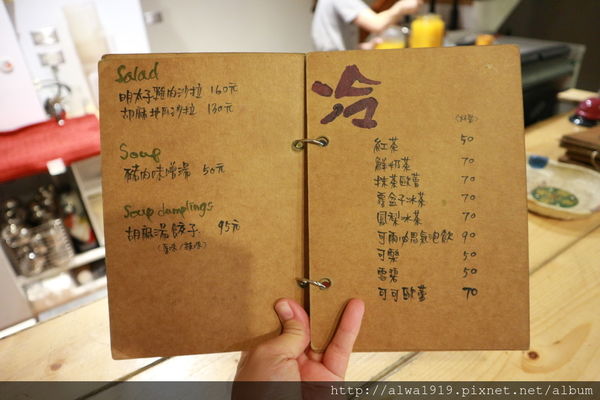 Salad
明太子雞肉沙拉 160元
胡麻 沙拉 130元
Soup
豬肉味噌湯 50元
Soup dumplings
胡麻湯餃子 95元
(原味/辣味)
冷
紅茶 50
鮮奶茶 70
抹茶歐蕾 70
覆盆子冰茶 70
鳳梨冰茶 70
可爾必思氣泡飲 90
可樂 50
雪碧 50
可可歐蕾 70
http://alwa1919.pixnet.net/album